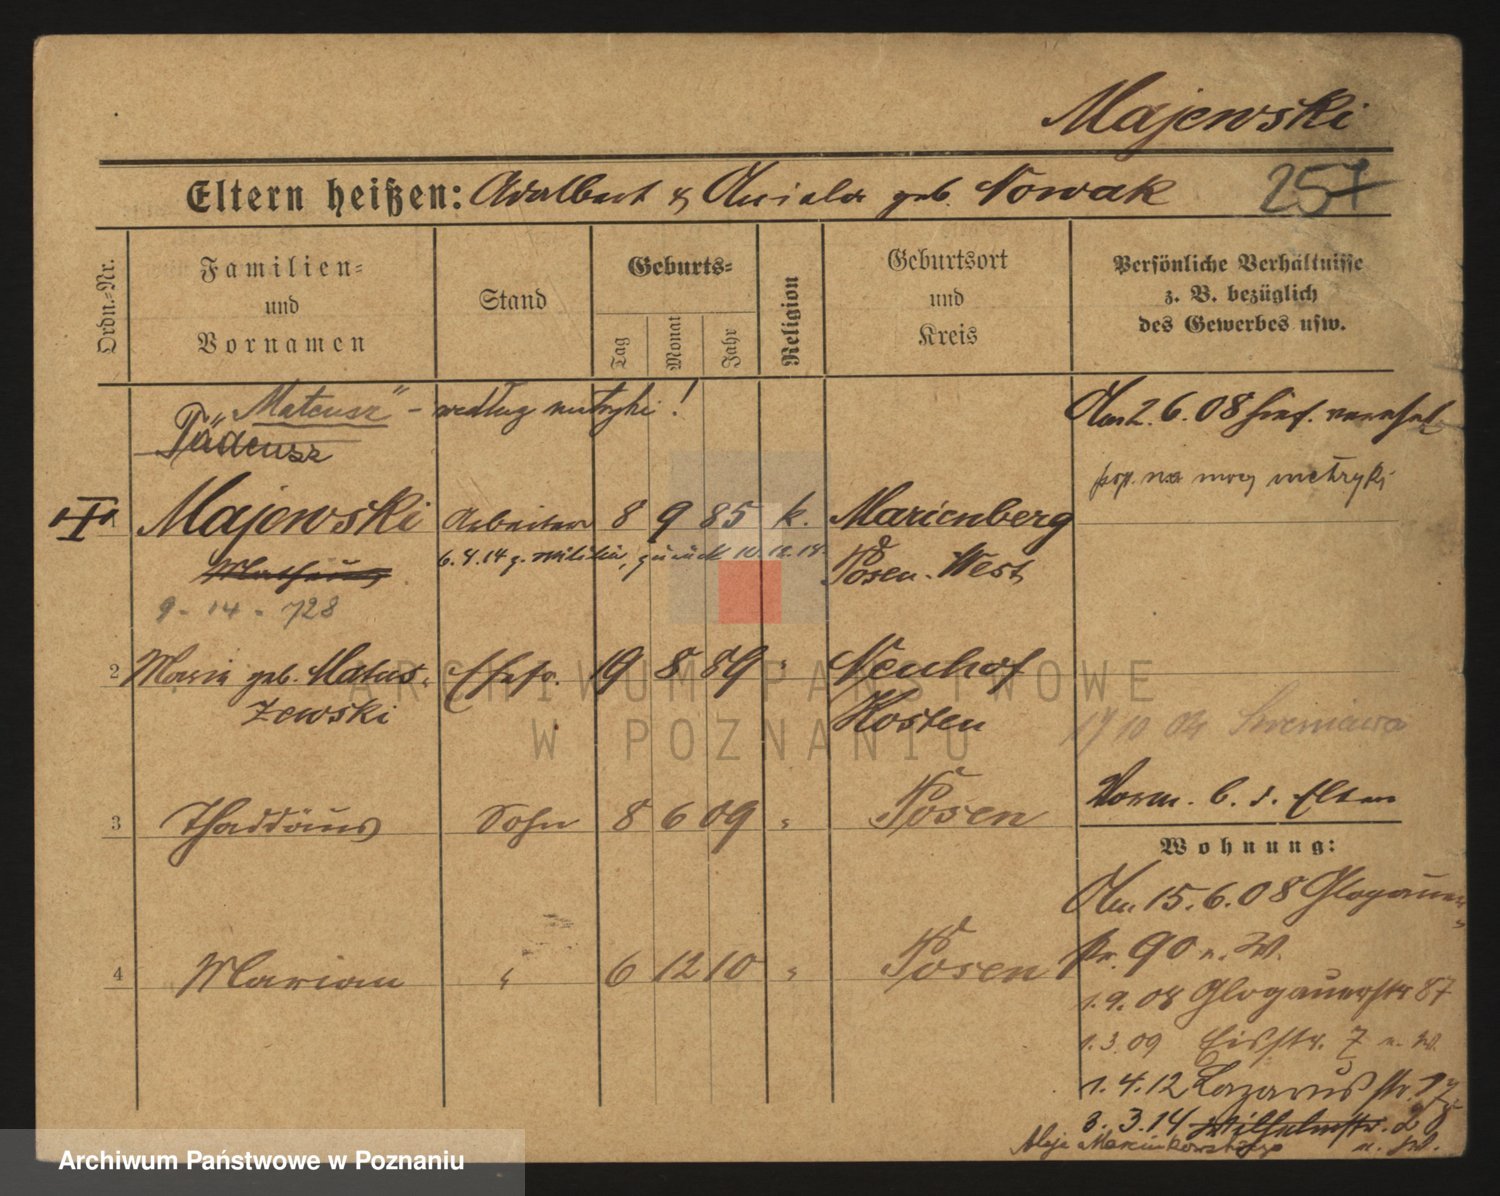 Majewski
Eltern heißen: Adalbert & Aniela geb. Nowak 257
Ordn.-Nr.
Familien-
und
Vornamen
Stand
Geburts-
Tag
Monat
Jahr
Religion
Geburtsort
und
Kreis
Persönliche Verhältnisse
z. B. bezüglich
des Gewerbes usw.
„Mateusz" - według metryki!
Tadeusz
Am 2. 6. 08 hies. verehel.
pop. na mocy metryki
1 Majewski Arbeiter 8 9 85 k. Marienberg
Mathäus
6. 4. 14 z. Militär, zurück 10. 12. 18.
Posen-West
9 - 14 - 728
2 Maria geb. Matus- Ehefr. 19 8 89 " Neuhof
zewski
Kosten
Vorm. b. d. Eltern
3 Thaddäus Sohn 8 6 09 " Posen
Wohnung:
Am 15. 6. 08 Glogauer-
str. 90 n. W.
4 Marian " 6 12 10 " Posen
1. 9. 08 Glogauerstr 87
1. 3. 09 Eisstr. 7 n. W.
1. 4. 12 Lazarusstr.
3. 3. 14 Wilhelmstr. 28
Aleje Marcinkowskiego
ARCHIWUM PAŃSTWOWE
W POZNANIU
Archiwum Państwowe w Poznaniu